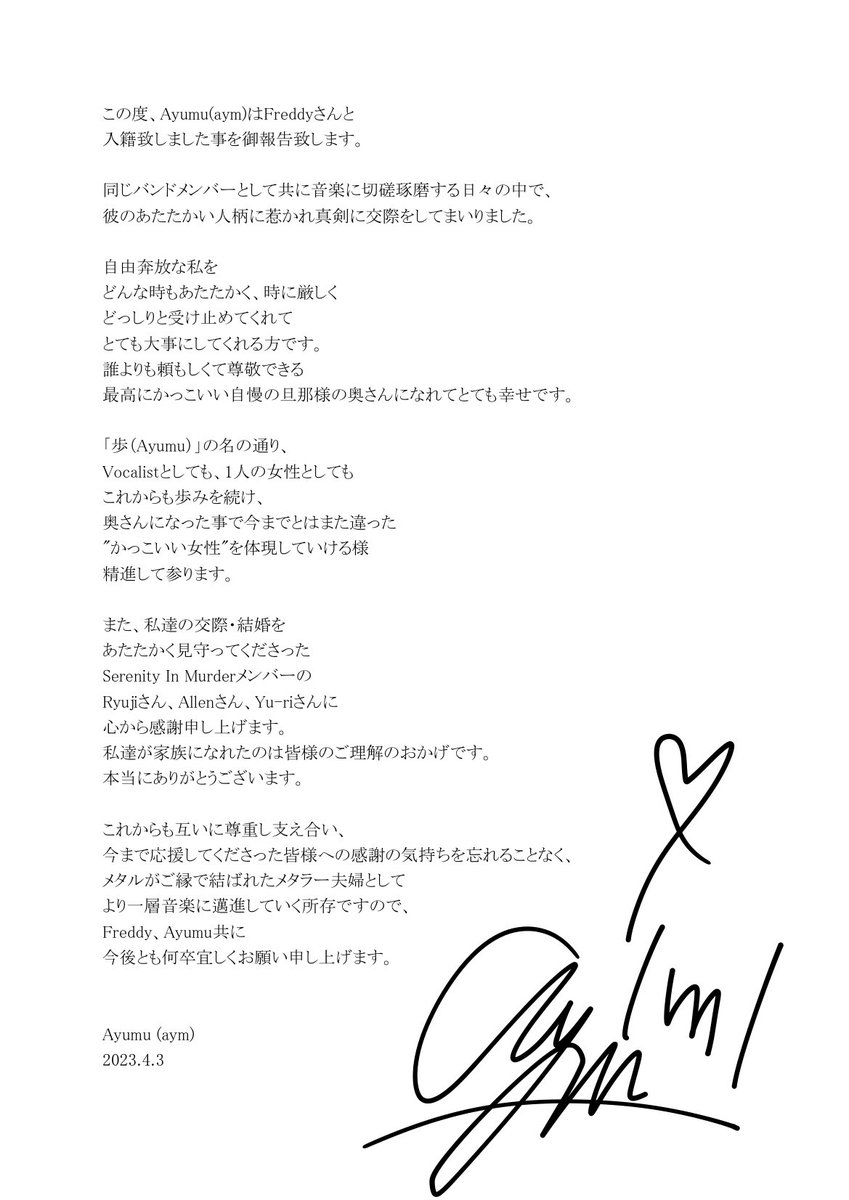 この度、Ayumu(aym)はFreddyさんと
入籍致しました事を御報告致します。
同じバンドメンバーとして共に音楽に切磋琢磨する日々の中で、
彼のあたたかい人柄に惹かれ真剣に交際をしてまいりました。
自由奔放な私を
どんな時もあたたかく、時に厳しく
どっしりと受け止めてくれて
とても大事にしてくれる方です。
誰よりも頼もしくて尊敬できる
最高にかっこいい自慢の旦那様の奥さんになれてとても幸せです。
「歩(Ayumu)」の名の通り、
Vocalistとしても、1人の女性としても
これからも歩みを続け、
奥さんになった事で今までとはまた違った
"かっこいい女性"を体現していける様
精進して参ります。
また、私達の交際・結婚を
あたたかく見守ってくださった
Serenity In Murderメンバーの
Ryujiさん、Allenさん、Yu-riさんに
心から感謝申し上げます。
私達が家族になれたのは皆様のご理解のおかげです。
本当にありがとうございます。
これからも互いに尊重し支え合い、
今まで応援してくださった皆様への感謝の気持ちを忘れることなく、
メタルがご縁で結ばれたメタラー夫婦として
より一層音楽に邁進していく所存ですので、
Freddy、Ayumu共に
今後とも何卒宜しくお願い申し上げます。
Ayumu (aym)
2023.4.3
aym